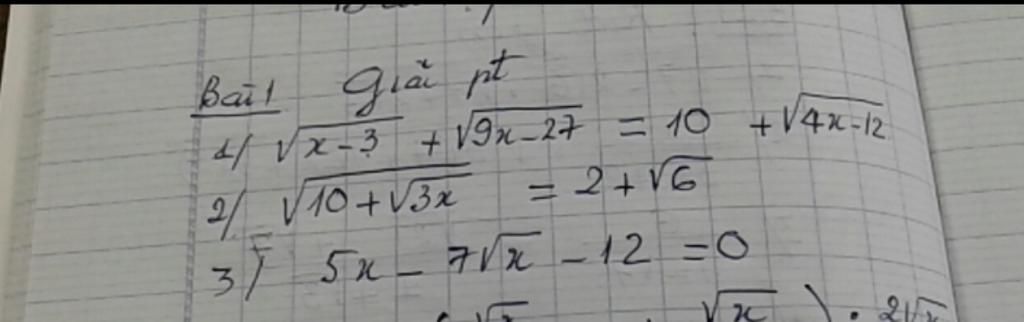 Bài 1 Giải pt
1/ √(x-3) + √(9x-27) = 10 + √(4x-12)
2/ √(10+√(3x)) = 2+√6
3) 5x - 7√x - 12 = 0